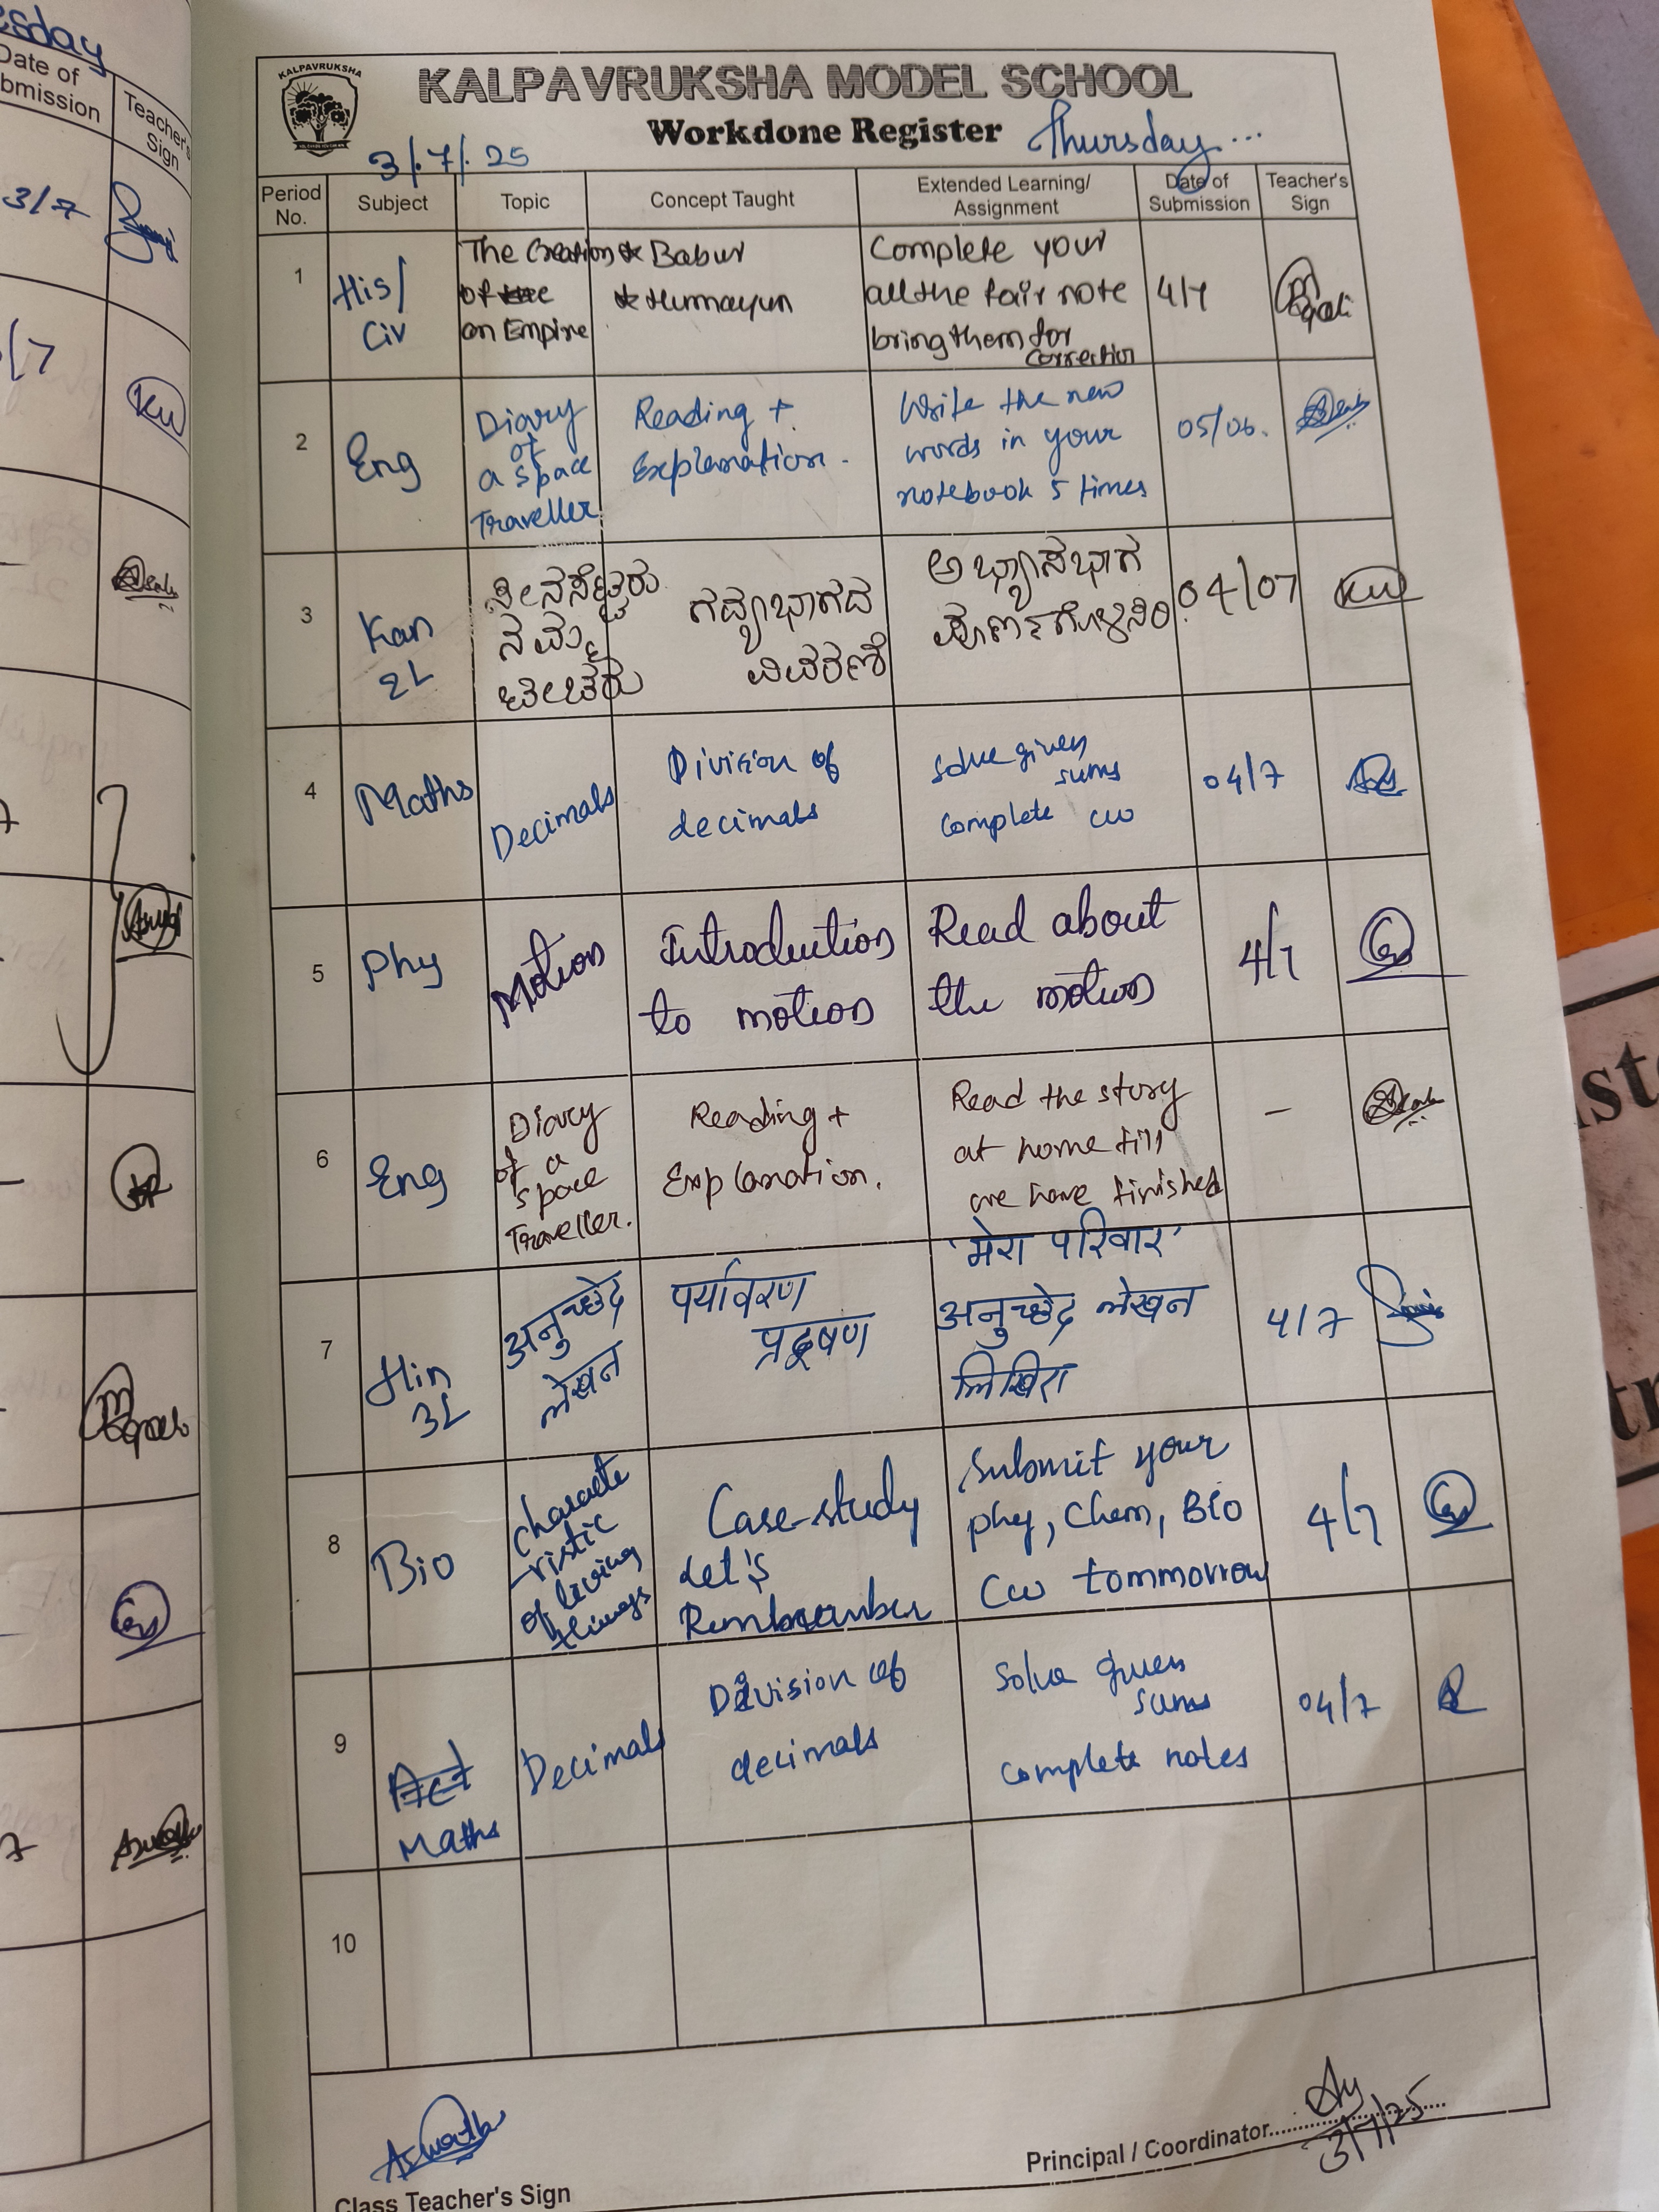 Date of
Submission
Teacher's
Sign
3/7
KALPAVRUKSHA
KALPAVRUKSHA MODEL SCHOOL
Workdone Register
Thursday
3/.7/.25
Period No.
Subject
Topic
Concept Taught
Extended Learning/ Assignment
Date of Submission
Teacher's Sign
1
His/ Civ
The Creation of the an Empire
* Babur
* Humayun
Complete your
all the fair note
bring them for
correction
4/7
2
Eng
Diary
of
a space
Traveller
Reading +
Explanation.
Write the new
words in your
notebook 5 times
05/06.
3
Kan
2L
ನಮ್ಮ
ಗದ್ಯಭಾಗದ
ವಿವರಣೆ
ಅಭ್ಯಾಸಭಾಗ
04/07
4
Maths
Decimals
Division of
decimals
Solve given
sums
complete cw
04/7
5
Phy
Motion
Introduction
to motion
Read about
the motion
4/7
6
Eng
Diary
of a
space
Traveller.
Reading +
Explanation.
Read the story
at home till
we have finished
–
7
Hin
3L
अनुच्छेद
लेखन
पर्यावरण
प्रदूषण
'मेरा परिवार'
अनुच्छेद लेखन
लिखिए
4/7
8
Bio
Characte
-ristic
of living
things
Case-study
Let's
Submit your
phy, Chem, Bio
Cw tommorrow
4/7
9
Maths
Decimals
Division of
decimals
Solve given
sums
complete notes
04/7
10
Class Teacher's Sign
Principal / Coordinator
3/7/25